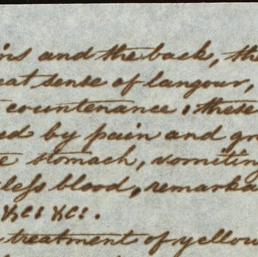 and the back, the
sense of langour,
countenance; these
by pain and
stomach, vomiting
blood, remarka
&c: &c:.
treatment of yellow